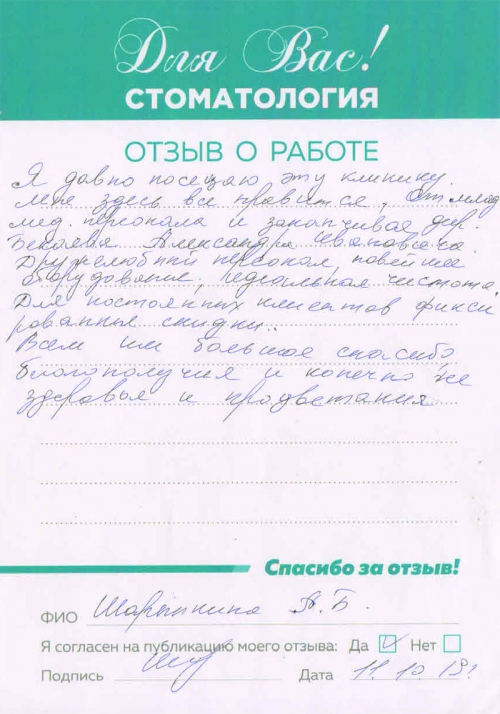 Для Вас!
СТОМАТОЛОГИЯ
ОТЗЫВ О РАБОТЕ
Я давно посещаю эту клинику.
Мне здесь все нравится. От млад
мед. персонала и заканчивая дир.
Александра Ивановича.
Дружелюбный персонал, новейшее
оборудование, идеальная чистота.
Для постоянных клиентов фикси
рованные скидки..
Всем им большое спасибо,
благополучия и конечно же
здоровья и процветания
Спасибо за отзыв!
ФИО А.Б.
Я согласен на публикацию моего отзыва: Да Нет
Подпись Дата 11.10.19г